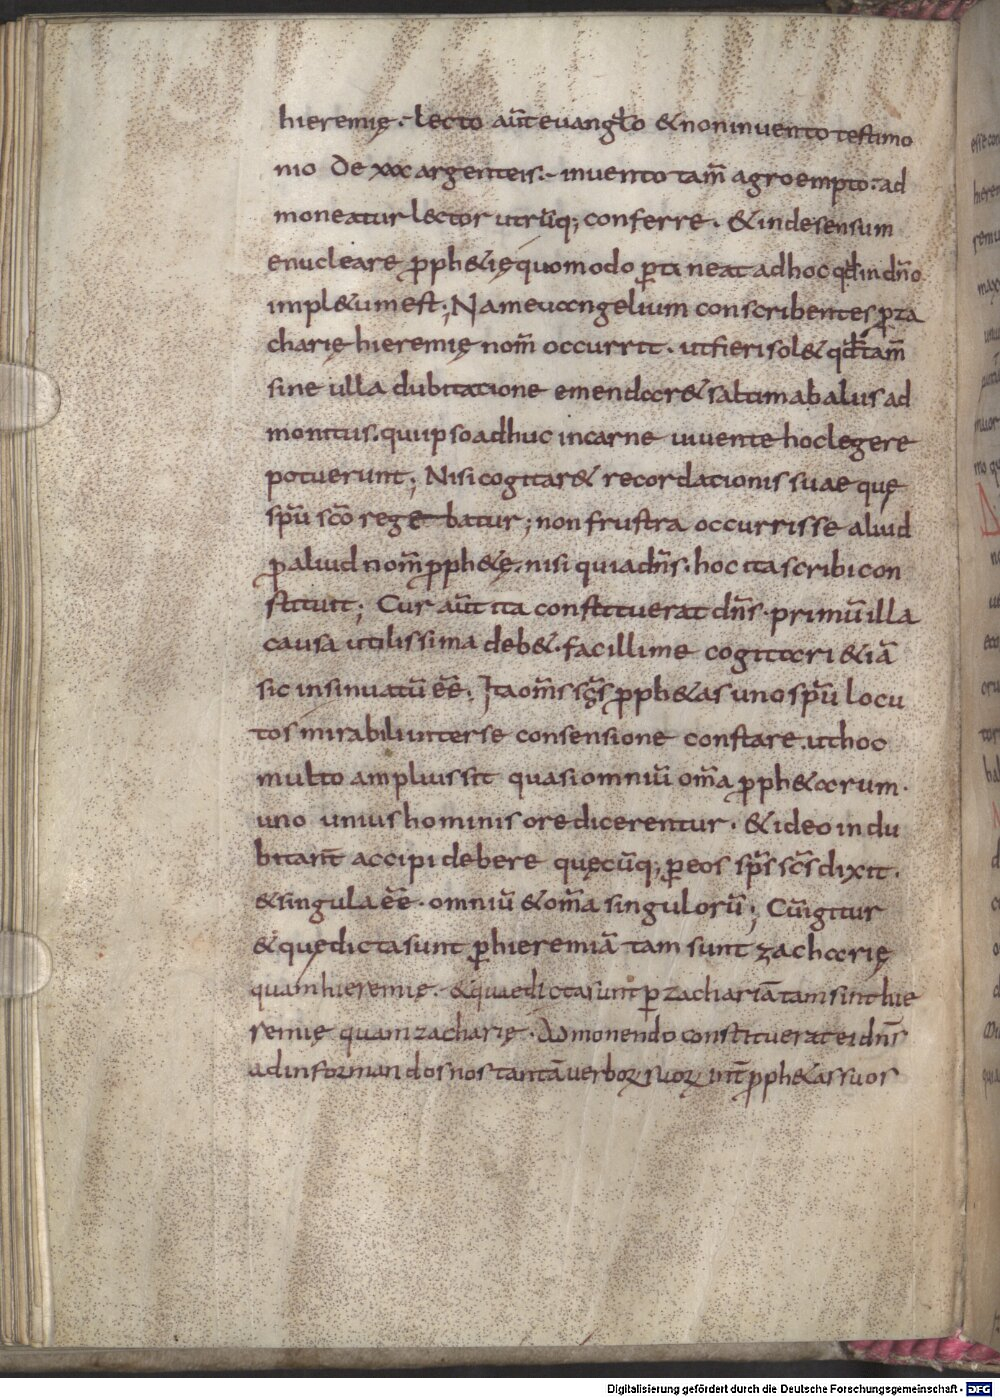 hieremię. lecto aūt euanglo & non inuento testimo
nio de xxx argenteis. inuento tam̄ agro empto. ad
moneatur lector utrūq; conferre. & inde sensum
enucleare p̱ph&ię quomodo p̱tineat ad hoc qđ in dn̄o
impl&um est; Nam euangelium conscribentes p̱ za
charię hieremię nom̄ occurrit. ut fieri sol& qđ tam̄
sine ulla dubitatione emendar& saltim ab aliis ad
monitus. qui ipso adhuc in carne uiuente hoc legere
potuerunt; Nisi cogitar& recordationis suae que
spū scō regebatur; non frustra occurrisse aliud
p̱ aliud nom̄ p̱ph&ę. nisi quia dn̄s. hoc ita scribi con
stituit; Cur aūt ita constituerat dn̄s. primū illa
causa utilissima deb&. facillime cogitari & iā
sic insinuatū eē. Ita om̄s sc̄s p̱ph&as uno spū locu
tos mirabili inter se consensione constare. ut hoc
multo amplius sit quasi omniū om̄a p̱ph&arum.
uno unius hominis ore dicerentur. & ideo indu
bitant̄ accipi debere quęcūq; p̱ eos sp̄s sc̄s dixit.
& singula eē. omniū & om̄a singulorū; Cū igitur
& quę dicta sunt p̱ hieremiā tam sunt zacharię
quam hieremię. & quae dicta sunt p̱ zachariā tam sint hie
remię quam zacharię. Admonendo constituerat ei dn̄s
ad informandos nos tantā uerboꝝ suoꝝ int̄ p̱ph&as suos